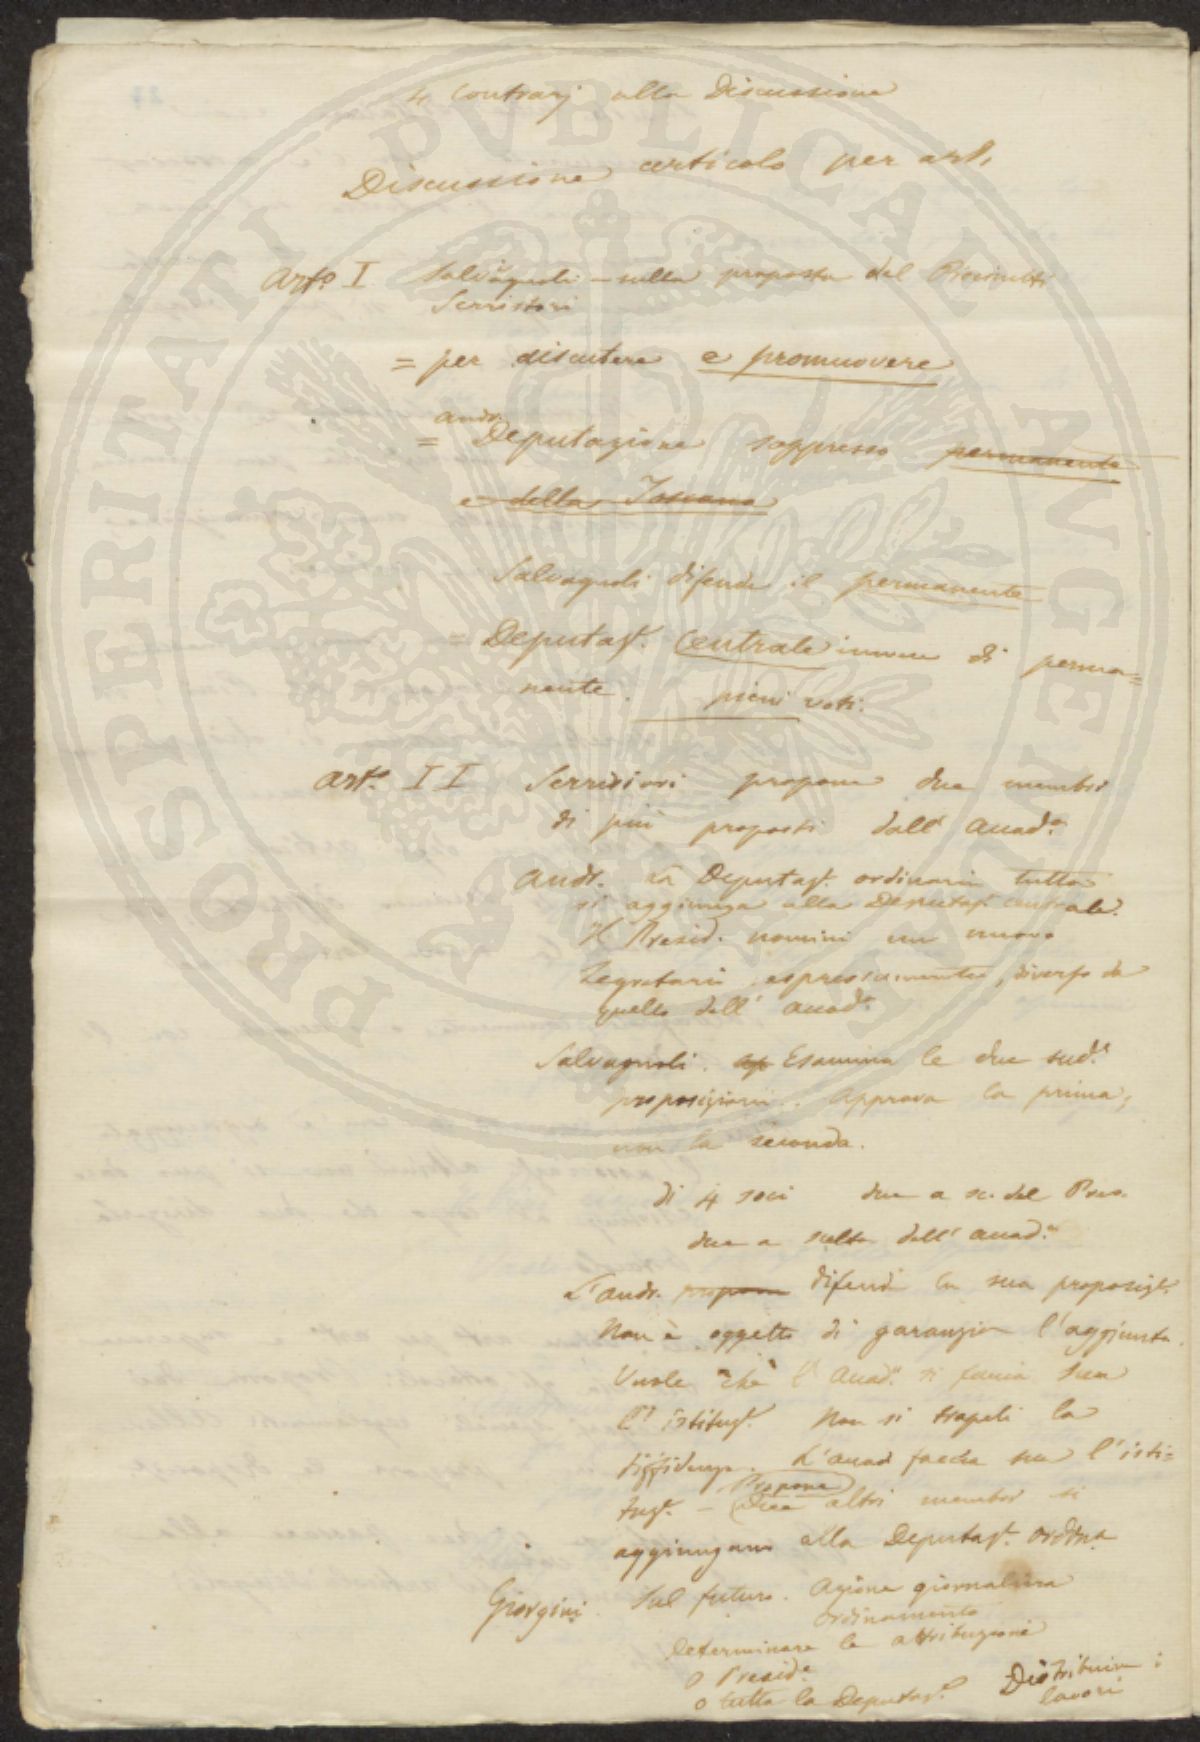 4 Contrarj alla Discussione
Discussione articolo per art.
Art.o I Salvagnoli – sulla proposta del Ricciutti
Serristori
= per discutere e promuovere
Andr.
= Deputazione soppresso permanente
e della Toscana
Salvagnoli difende il permanente
= Deputaz.e Centrale invece di perma=
nente. pieni voti.
Art.o II Serristori propone due membri
di più proposti dall' Accad.a
Andr. La Deputaz.e ordinaria tutta
si aggiunga alla Deputaz.e Centrale.
Il Presid.e nomini un nuovo
Segretario espressamente, diverso da
quello dell' Accad.a
Salvagnoli. ap Esamina le due sud.e
proposizioni. Approva la prima,
non la seconda.
di 4 soci due a sc. del Pres.
due a scelta dell' Accad.a
L'Andr. propone difende la sua proposiz.e
Non è oggetto di garanzia l'aggiunta.
Vuole che l' Accad.a si faccia sua
l' istituz.e Non si trapeli la
diffidenza. L'Accad faccia sua l'isti=
tuz.e – Propone
Due altri membri si
aggiungano alla Deputaz.e ordina
Giorgini. Sul futuro. Azione giornaliera
ordinamento
Determinare le attribuzioni
O Presid.e
o tutta la Deputaz.e Distribuire i
lavori